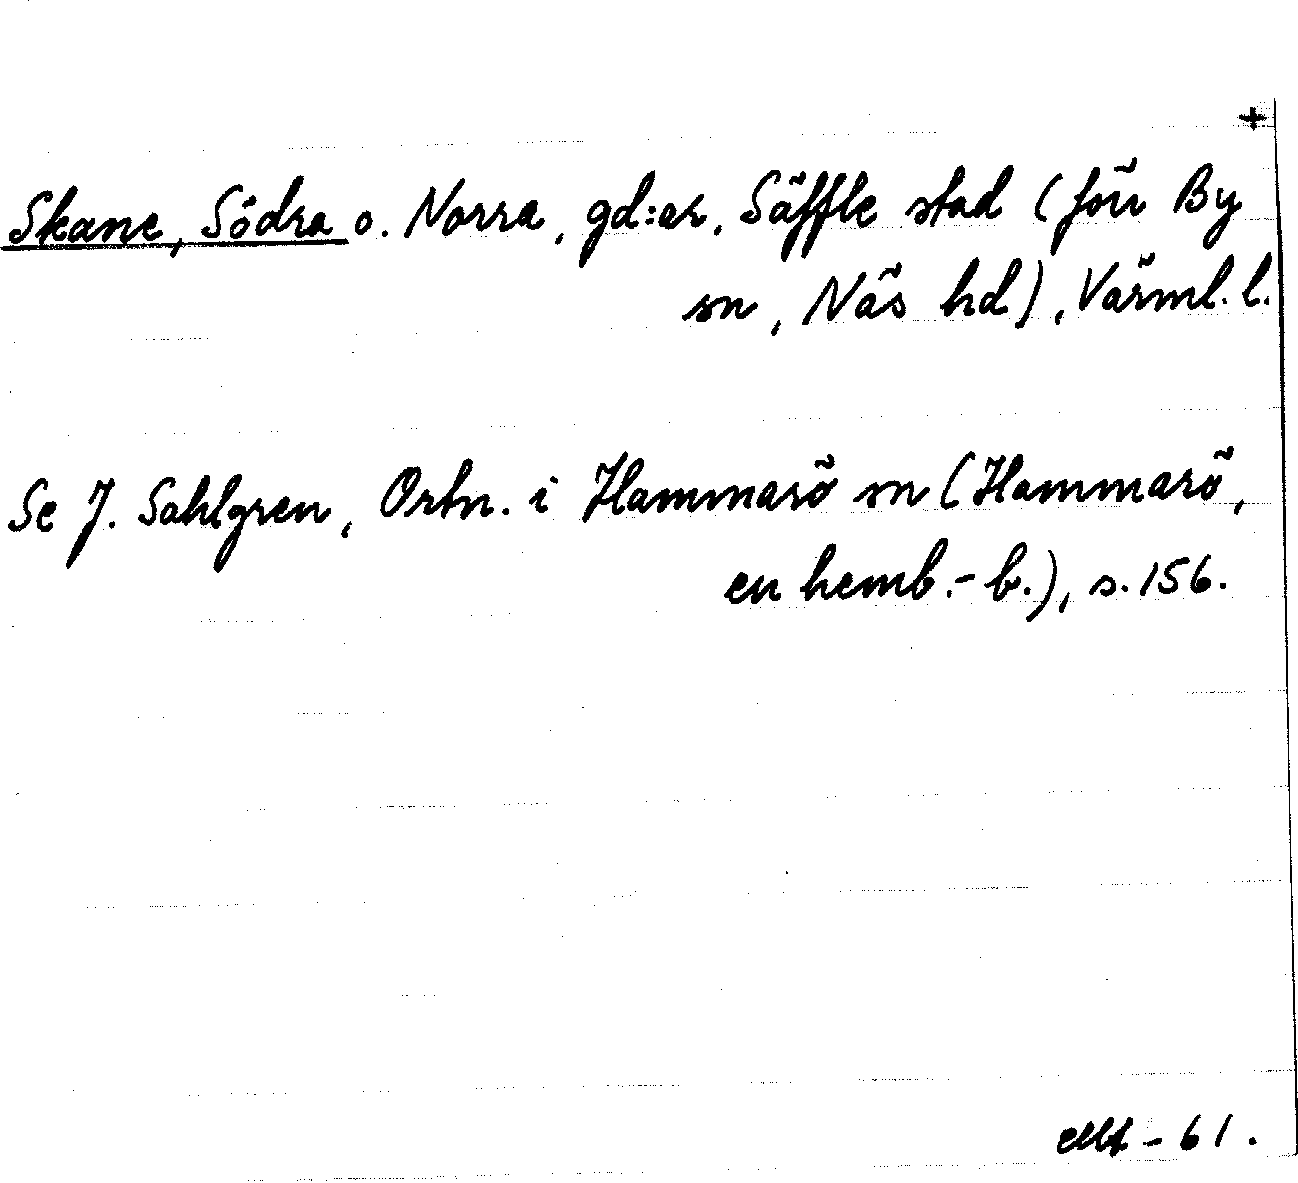 +
Skane, Södra o. Norra, gd:ar, Säffle stad (förr By
sn, Näs hd), Värml. l.
Se J. Sahlgren, Ortn. i Hammarö sn (Hammarö,
en hemb.-b.), s. 156.
- 61.